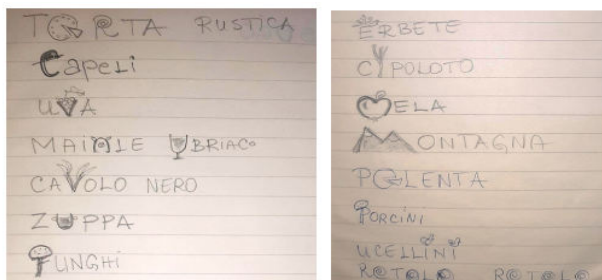 TORTA RUSTICA
Capeli
UVA
MAIALE UBRIACO
CAVOLO NERO
ZUPPA
FUNGHI
ERBETE
CIPOLOTO
MELA
MONTAGNA
POLENTA
PORCINI
UCELLINI
ROTOLO ROTOLO